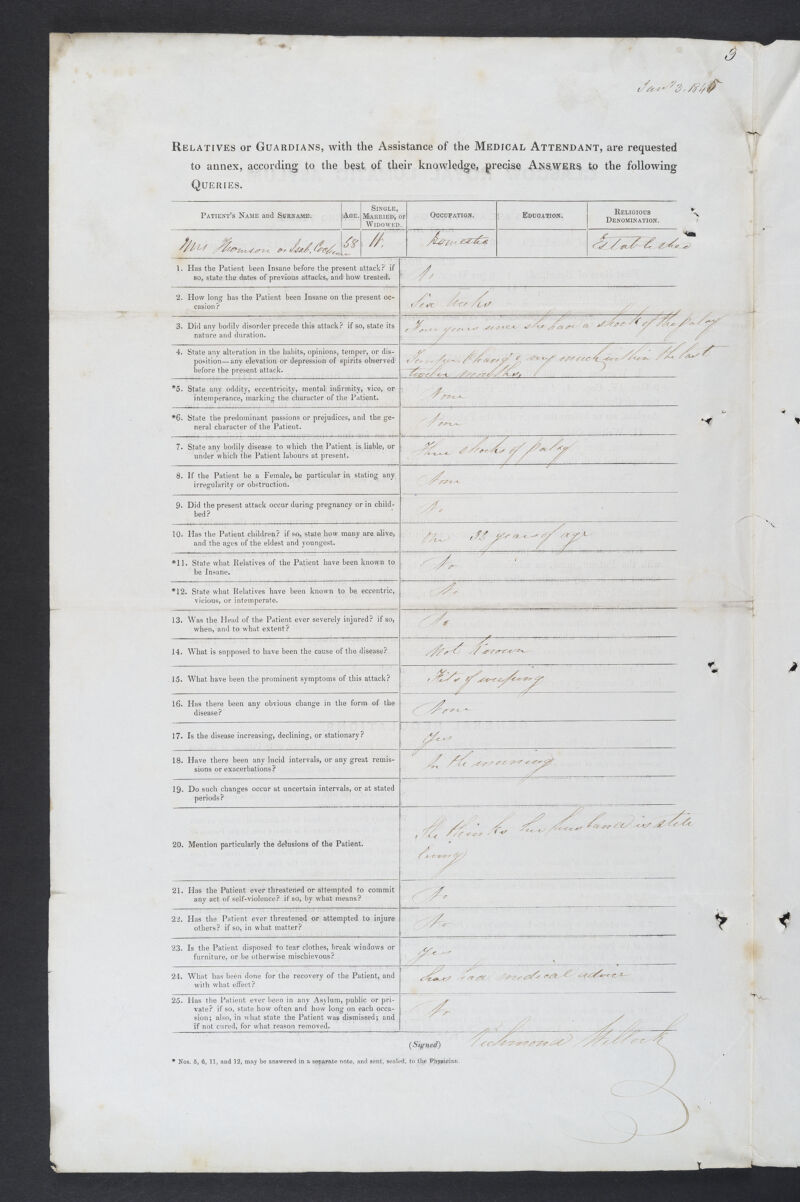 9
Jany 3. 1845
RELATIVES or GUARDIANS, with the Assistance of the MEDICAL ATTENDANT, are requested
to annex, according to the best of their knowledge, precise ANSWERS to the following
QUERIES.
PATIENT'S NAME and SURNAME. AGE. SINGLE, MARRIED, or WIDOWED. OCCUPATION. EDUCATION. RELIGIOUS DENOMINATION.
Mrs Thomson or Isab. 58 W. Domestic Established
1. Has the Patient been Insane before the present attack? if
so, state the dates of previous attacks, and how treated.
No
2. How long has the Patient been Insane on the present oc-
casion?
Six Weeks
3. Did any bodily disorder precede this attack? if so, state its
nature and duration.
Four years since she had a shock of the palsy
4. State any alteration in the habits, opinions, temper, or dis-
position—any elevation or depression of spirits observed
before the present attack.
Temper Change very much within the last
twelve months
*5. State any oddity, eccentricity, mental infirmity, vice, or
intemperance, marking the character of the Patient.
None
*6. State the predominant passions or prejudices, and the ge-
neral character of the Patient.
None
7. State any bodily disease to which the Patient is liable, or
under which the Patient labours at present.
Three shocks of palsy
8. If the Patient be a Female, be particular in stating any
irregularity or obstruction.
None
9. Did the present attack occur during pregnancy or in child-
bed?
No
10. Has the Patient children? if so, state how many are alive,
and the ages of the eldest and youngest.
One 33 years of age
*11. State what Relatives of the Patient have been known to
be Insane.
No
*12. State what Relatives have been known to be eccentric,
vicious, or intemperate.
No
13. Was the Head of the Patient ever severely injured? if so,
when, and to what extent?
No
14. What is supposed to have been the cause of the disease?
Not Known
15. What have been the prominent symptoms of this attack?
Fits of weeping
16. Has there been any obvious change in the form of the
disease?
None
17. Is the disease increasing, declining, or stationary?
Yes
18. Have there been any lucid intervals, or any great remis-
sions or exacerbations?
In the morning
19. Do such changes occur at uncertain intervals, or at stated
periods?
20. Mention particularly the delusions of the Patient.
She thinks her husband is still
living
21. Has the Patient ever threatened or attempted to commit
any act of self-violence? if so, by what means?
No
22. Has the Patient ever threatened or attempted to injure
others? if so, in what matter?
No
23. Is the Patient disposed to tear clothes, break windows or
furniture, or be otherwise mischievous?
Yes
24. What has been done for the recovery of the Patient, and
with what effect?
has had medical advice
25. Has the Patient ever been in any Asylum, public or pri-
vate? if so, state how often and how long on each occa-
sion; also, in what state the Patient was dismissed; and
if not cured, for what reason removed.
No
(Signed) Richmond
* Nos. 5, 6, 11, and 12, may be answered in a separate note, and sent, sealed, to the Physician.